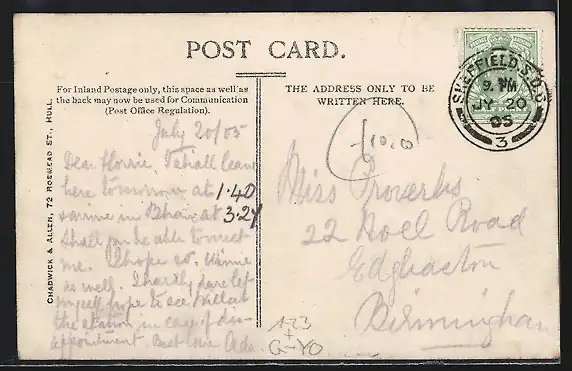 POST CARD.
For Inland Postage only, this space as well as
the back may now be used for Communication
(Post Office Regulation).
THE ADDRESS ONLY TO BE
WRITTEN HERE.
CHADWICK & ALLEN, 72 ROSMEAD ST., HULL.
SHEFFIELD S.O.
9. PM
JY 20
05
3
July 20/05
Dear Florrie, I shall leave
here tomorrow at 1.40
arrive in B'ham at 3.27
Shall you be able to meet
me. I hope so. Winnie
as well. I hardly dare let
myself hope to see Will at
the station in case of dis-
appointment. Best love Ada.
Miss Proverbs
22 Noel Road
Edgbaston
Birmingham
£10.0
A23
+
G-YO